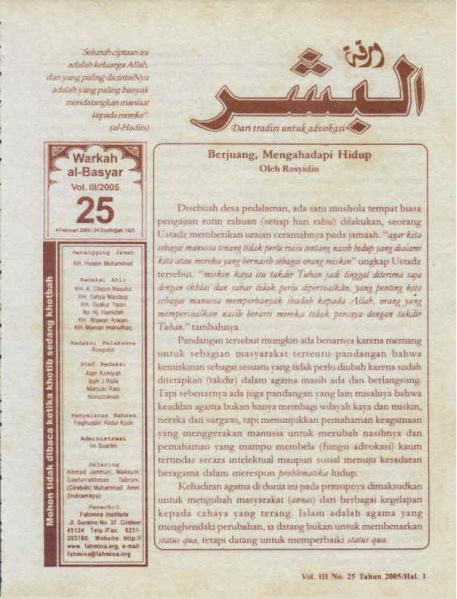 "Seluruh ciptaan ini
adalah keluarga Allah,
dan yang paling dicintaiNya
adalah yang paling banyak
mendatangkan manfaat
kepada mereka"
(al-Hadits)
ورقة
البشر
Dari tradisi untuk advokasi
Warkah
al-Basyar
Vol. III/2005
25
Mohon tidak dibaca ketika khotib sedang khotbah
Penanggung Jawab:
KH. Husein Muhammad
Redaksi Ahli:
KH. Syakur Yasin
Ny. Hj. Hamidah
KH. Wawan Arwani
KH. Maman Imanulhaq
Redaksi Pelaksana
Rosyidin
Staf Redaksi
Marzuki Rais
Nuruzzaman
Penyelaras Bahasa
Faqihuddin Abdul Kodir
Administrasi
Jejaring
(Indramayu)
Penerbit
Fahmina Institute
Jl. Suratno No. 37 Cirebon
45124 Telp./Fax. 0231-
203789, Website: http://
www.fahmina.org, e-mail:
fahmina@fahmina.org
Berjuang, Mengahadapi Hidup
Oleh Rosyidin
Disebuah desa pedalaman, ada satu mushola tempat biasa
pengajian rutin rabuan (setiap hari rabu) dilakukan, seorang
Ustadz memberikan uraian ceramahnya pada jamaah. "agar kita
sebagai manusia tenang tidak perlu risau tentang nasib hidup yang dialami
kita atau mereka yang bernasib sebagai orang miskin" ungkap Ustadz
tersebut. "miskin kaya itu takdir Tuhan jadi tinggal diterima saja
dengan ikhlas dan sabar tidak perlu dipersoalkan, yang penting kita
sebagai manusia memperbanyak ibadah kepada Allah, orang yang
mempersoalkan nasib berarti mereka tidak percaya dengan takdir
Tuhan," tambahnya.
Pandangan tersebut mungkin ada benarnya karena memang
untuk sebagian masyarakat tertentu pandangan bahwa
kemiskinan sebagai sesuatu yang tidak perlu diubah karena sudah
ditetapkan (takdir) dalam agama masih ada dan berlangsung.
Tapi sebenarnya ada juga pandangan yang lain misalnya bahwa
keadilan agama bukan hanya membagi wilayah kaya dan miskin,
neraka dan surgawi, tapi menunjukkan pemahaman keagamaan
yang menggerakan manusia untuk merubah nasibnya dan
pemahaman yang mampu membela (fungsi advokasi) kaum
tertundas secara intelektual maupun sosial menuju kesadaran
beragama dalam merespon problematika hidup.
Kehadiran agama di dunia ini pada prinsipnya dimaksudkan
untuk mengubah masyarakat (annas) dari berbagai kegelapan
kepada cahaya yang terang. Islam adalah agama yang
menghendaki perubahan, ia datang bukan untuk membenarkan
status quo, tetapi datang untuk memperbaiki status quo.
Vol. III No. 25 Tahun 2005/Hal. 1